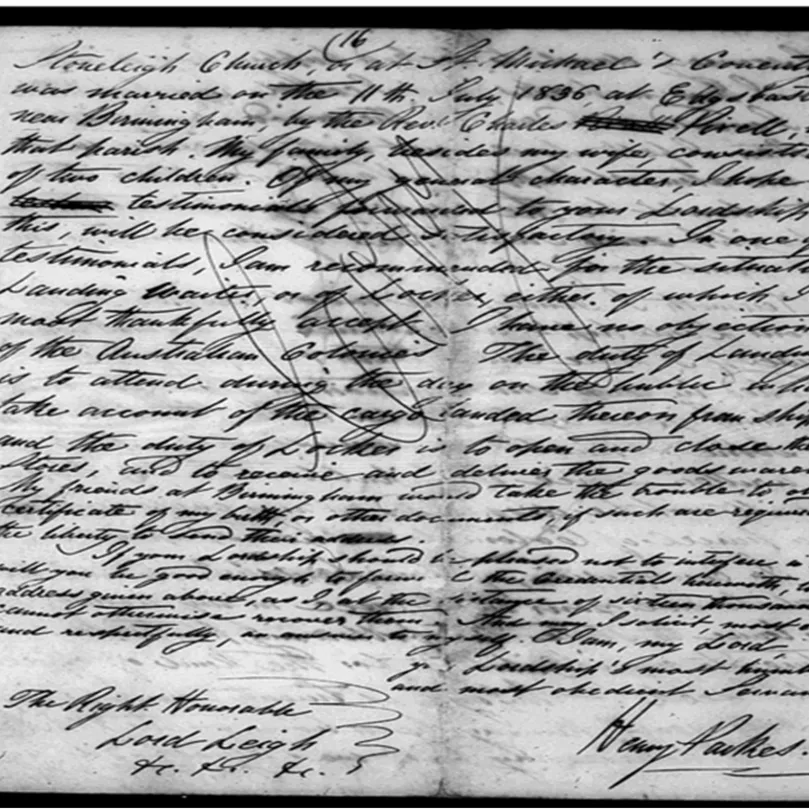 (16
Stoneleigh Church, or at St. Michael's Coventr
was married on the 11th July 1836, at Edgbast
near Birmingham, by the Revd. Charles Pixell,
that parish. My family, besides my wife, consist
of two children. Of my general character, I hope
testimonial to your Lordship
this, will be considered satisfactory. In one
testimonial, I am recommended for the situat
Landing Waiter, or of Locker, either of which I
most thankfully accept. I have no objection
of the Australian Colonies. The duty of Landi
is to attend during the day on the public
take account of the cargo landed thereon from ship
and the duty of Locker is to open and close the
Stores, and to receive and deliver the goods ware
My friends at Birmingham would take the trouble to
certificate of my birth, or other documents, if such are requir
the liberty to send their address.
If your Lordship should be pleased not to interfere
will you be good enough to forw the Credentials herewith,
address given above, as I, at the distance of sixteen thousan
cannot otherwise recover them. And may I solicit, most
and respectfully, an answer to I am, my Lord
Lordship's most
and most obedient Servan
The Right Honorable
Lord Leigh
&c. &c. &c.
Henry Parkes.